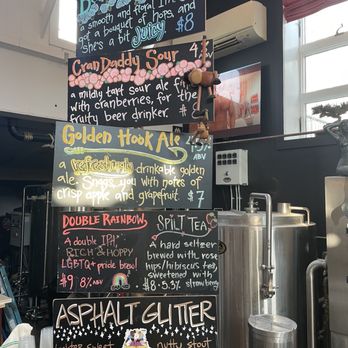 a smooth and floral IPA
not a bouquet of hops, and
she's a bit juicy $8
CranDaddy Sour 4
a mildly tart sour ale
with cranberries, for the
fruity beer drinker. $
Golden Hook Ale
ABV
a refreshingly drinkable golden
ale. Snags you with notes of
crisp apple and grapefruit. $7
DOUBLE RAINBOW
A double IPA
RICH & HOPPY
LGBTQ+ pride brew!
$9 8% ABV
SPILT TEA
A hard seltzer
brewed with rose
hips/hibiscus tea,
sweetened with
$8 - 5.3% strawberry
ASPHALT GLITTER
sweet nutty stout